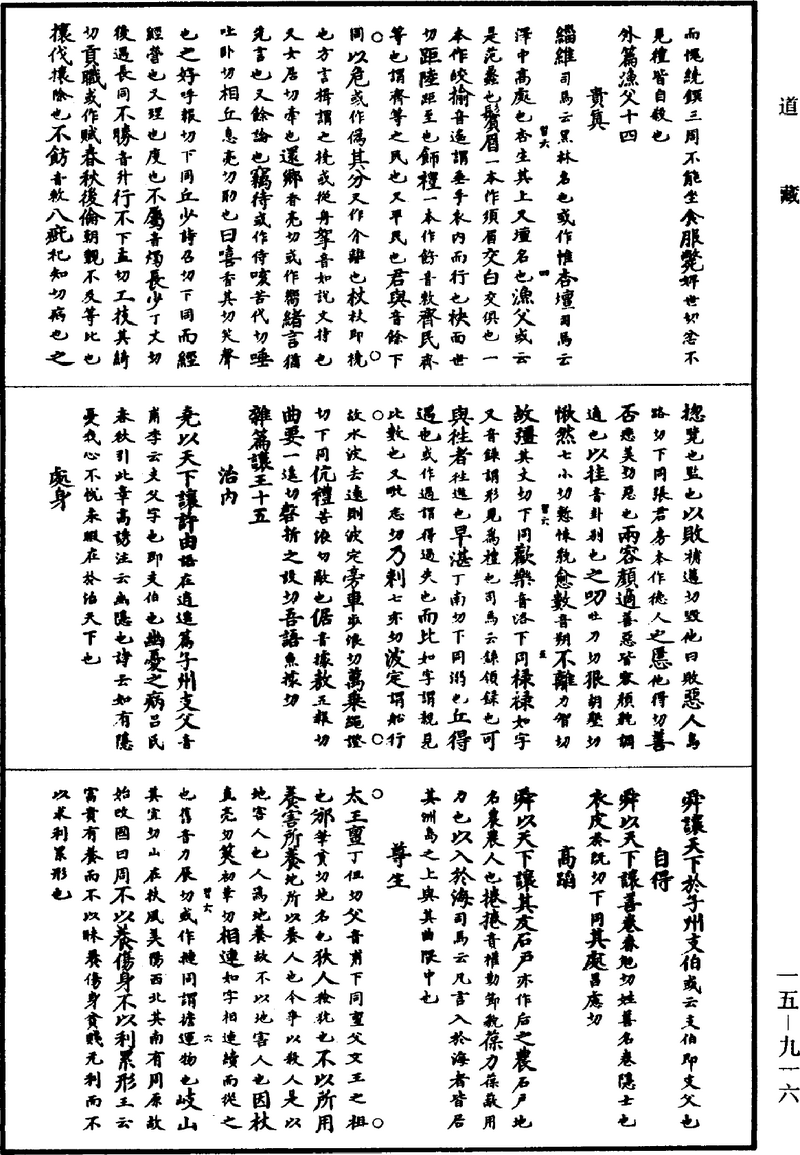 道藏
而愧繞鐶三周不能坐食服斃婢世切客不
見禮皆自殺也
外篇漁父十四
貴真
緇維司馬云黑林名也或作惟杏壇司馬云
澤中高處也杏生其上又壇名也漁父或云
是范蠡也鬚眉一本作須眉交白交俱也一
本作皎揄音遙謂垂手衣內而行也袂面世
切距陸距至也飾禮一本作飭音敕齊民齊
等也謂齊等之民也又平民也君與音餘下
同以危或作偽其分又作介離也杖杖即橈
也方言楫謂之橈或從舟挐音如說文持也
又女居切牽也還鄉香亮切或作嚮緒言猶
先言也又餘論也竊待或作侍咳苦代切唾
吐卧切相丘息亮切助也曰嘻香其切笑聲
也之好呼報切下同丘少詩召切下同而經
經營也又理也度也不屬音燭長少丁丈切
後遇長同不勝音升行不下孟切工技其綺
切貢職或作賦春秋後倫朝覲不及等比也
攘伐攘除也不飭音敕八疵祀知切病也之
摠覽也監也以敗補邁切毀他曰敗惡人烏
路切下同張君房本作德人之慝他得切善
否悲美切惡也兩容顏適善惡皆容顏貌調
適也以挂音卦別也之叨吐刀切狠胡墾切
愀然七小切慙悚貌愈數音朔不離力智切
故彊其丈切下同歡樂音洛下同祿祿如字
又音錄謂形見為禮也司馬云錄領錄也可
與往者往進也早湛丁南切下同溺也丘得
遇也或作過謂得過失也而比如字謂親見
比數也又毗志切乃刺七亦切波定謂船行
故水波去遠則波定旁車步浪切萬乘繩證
切下同伉禮苦浪切敵也倨音據敖五報切
曲要一遙切磬折之設切吾語魚據切
雜篇讓王十五
治內
堯以天下讓許由語在逍遙篇子州支父音
甫李云支父字也即支伯也幽憂之病呂氏
春秋引此章高誘注云幽隱也諄云如有隱
憂我心不悅未暇在於治天下也
處身
舜讓天下於子州支伯或云支伯即支父也
自得
舜以天下讓善卷眷勉切姓善名卷隱士也
衣皮於既切下同其處昌慮切
高蹈
舜以天下讓其友石戶亦作后之農石戶地
名農農人也捲捲音權勤勞貌葆力葆蔽用
力也以入於海司馬云凡言入於海者皆居
其洲島之上與其曲隈中也
尊生
太王亶丁但切父音甫下同亶父文王之祖
也邠筆貧切地名也狄人獫狁也不以所用
養害所養地所以養人也今爭以殺人是以
地害人也人為地養故不以地害人也因杖
直亮切筴初革切相連如字相連續而從之
也舊音力展切或作摙同謂擔運物也岐山
其宜切山在扶風美陽西北其南有周原故
始改國曰周不以養傷身不以利累形王云
富貴有養而不以昧養傷身貧賤无利而不
以求利累形也
一五—九一六